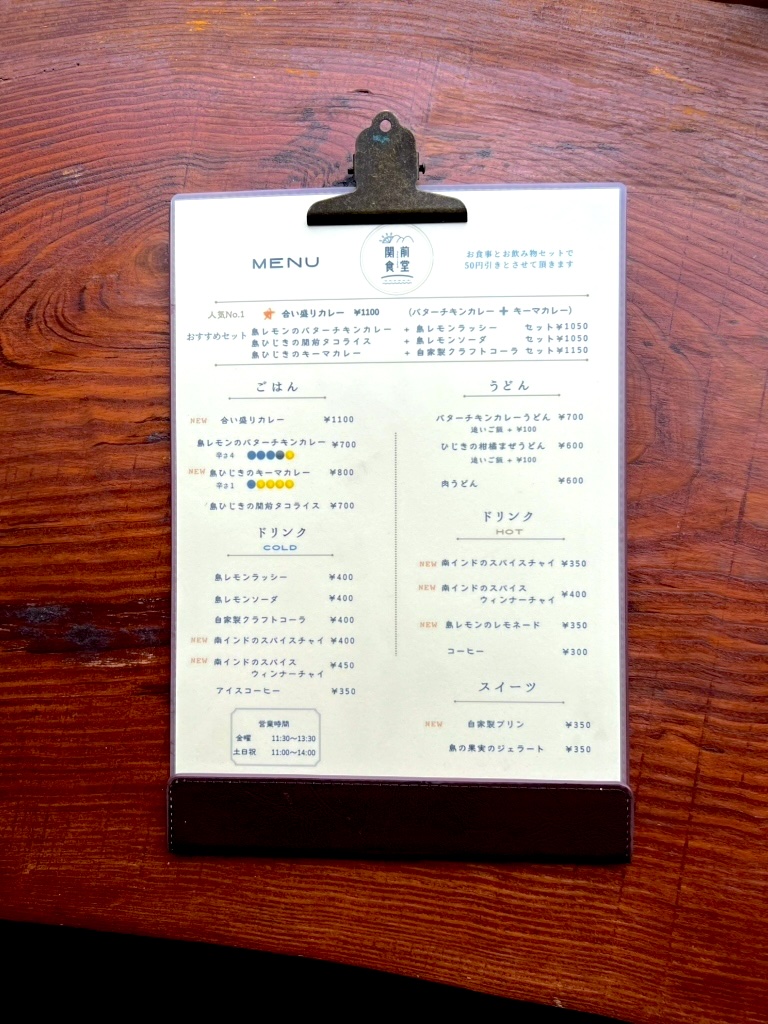 MENU
関前
食堂
お食事とお飲み物セットで
50円引きとさせて頂きます
人気No.1 合い盛りカレー ¥1100 (バターチキンカレー + キーマカレー)
おすすめセット
島レモンのバターチキンカレー + 島レモンラッシー セット¥1050
島ひじきの関前タコライス + 島レモンソーダ セット¥1050
島ひじきのキーマカレー + 自家製クラフトコーラ セット¥1150
ごはん
NEW 合い盛りカレー ¥1100
島レモンのバターチキンカレー ¥700
辛さ4
NEW 島ひじきのキーマカレー ¥800
辛さ1
島ひじきの関前タコライス ¥700
ドリンク
COLD
島レモンラッシー ¥400
島レモンソーダ ¥400
自家製クラフトコーラ ¥400
NEW 南インドのスパイスチャイ ¥400
NEW 南インドのスパイス
ウィンナーチャイ ¥450
アイスコーヒー ¥350
営業時間
金曜 11:30〜13:30
土日祝 11:00〜14:00
うどん
バターチキンカレーうどん ¥700
追いご飯 + ¥100
ひじきの柑橘まぜうどん ¥600
追いご飯 + ¥100
肉うどん ¥600
ドリンク
HOT
NEW 南インドのスパイスチャイ ¥350
NEW 南インドのスパイス
ウィンナーチャイ ¥400
NEW 島レモンのレモネード ¥350
コーヒー ¥300
スイーツ
NEW 自家製プリン ¥350
島の果実のジェラート ¥350